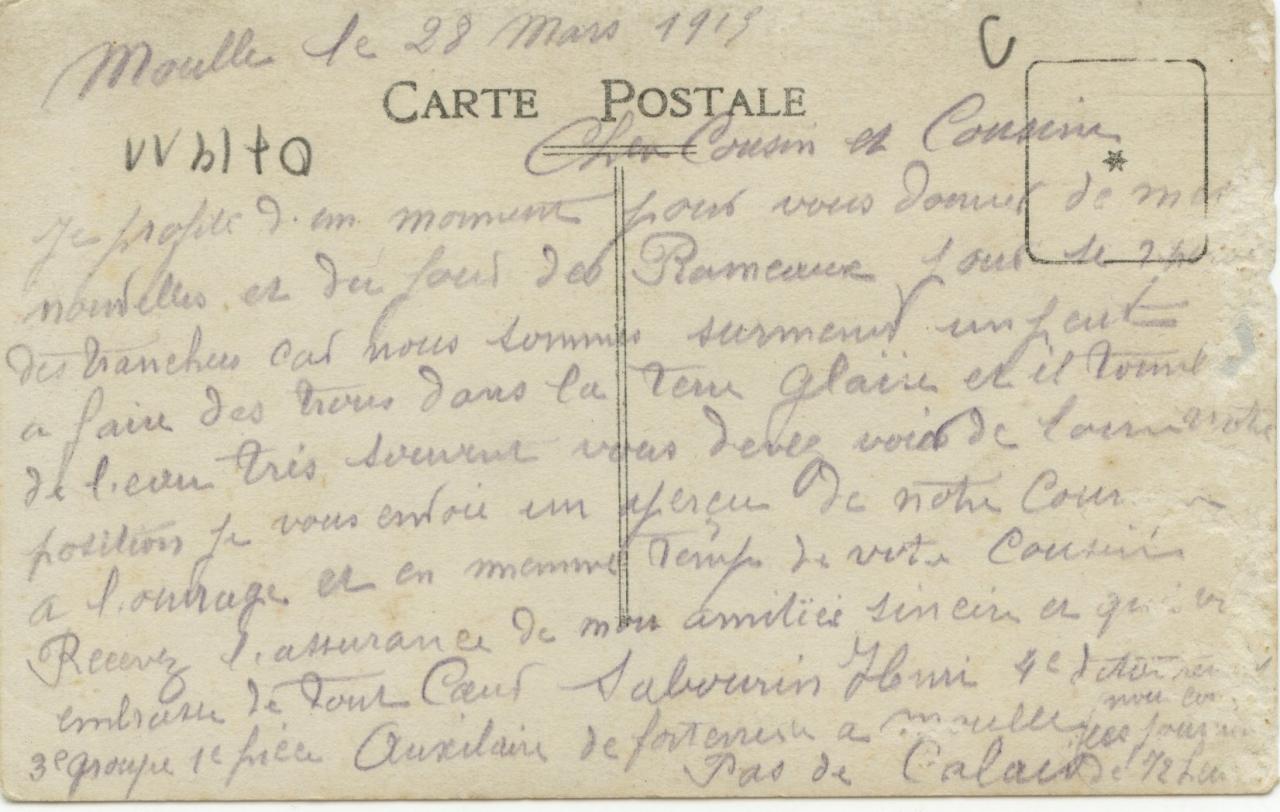 Moulle le 28 Mars 1915
C
CARTE POSTALE
Cher Cousin et Cousine
Je profite d'un moment pour vous donner de mes
nouvelles et du jour des Rameaux pour se
des tranchees car nous sommes surmené un peut
a faire des trous dans la terre glaise et il tombe
de l'eau très souvent vous devez voir de loin notre
position je vous envoie un aperçu de notre Cour
a l'ouvrage et en memme temps de votre Cousin
Recevez l'assurance de mon amitiée sincere et qui
embrasse de tout Cœur Sabourin Henri 4e
3e groupe 1e pièce Auxilaire de forteresse a moulle
Pas de Calais de 72